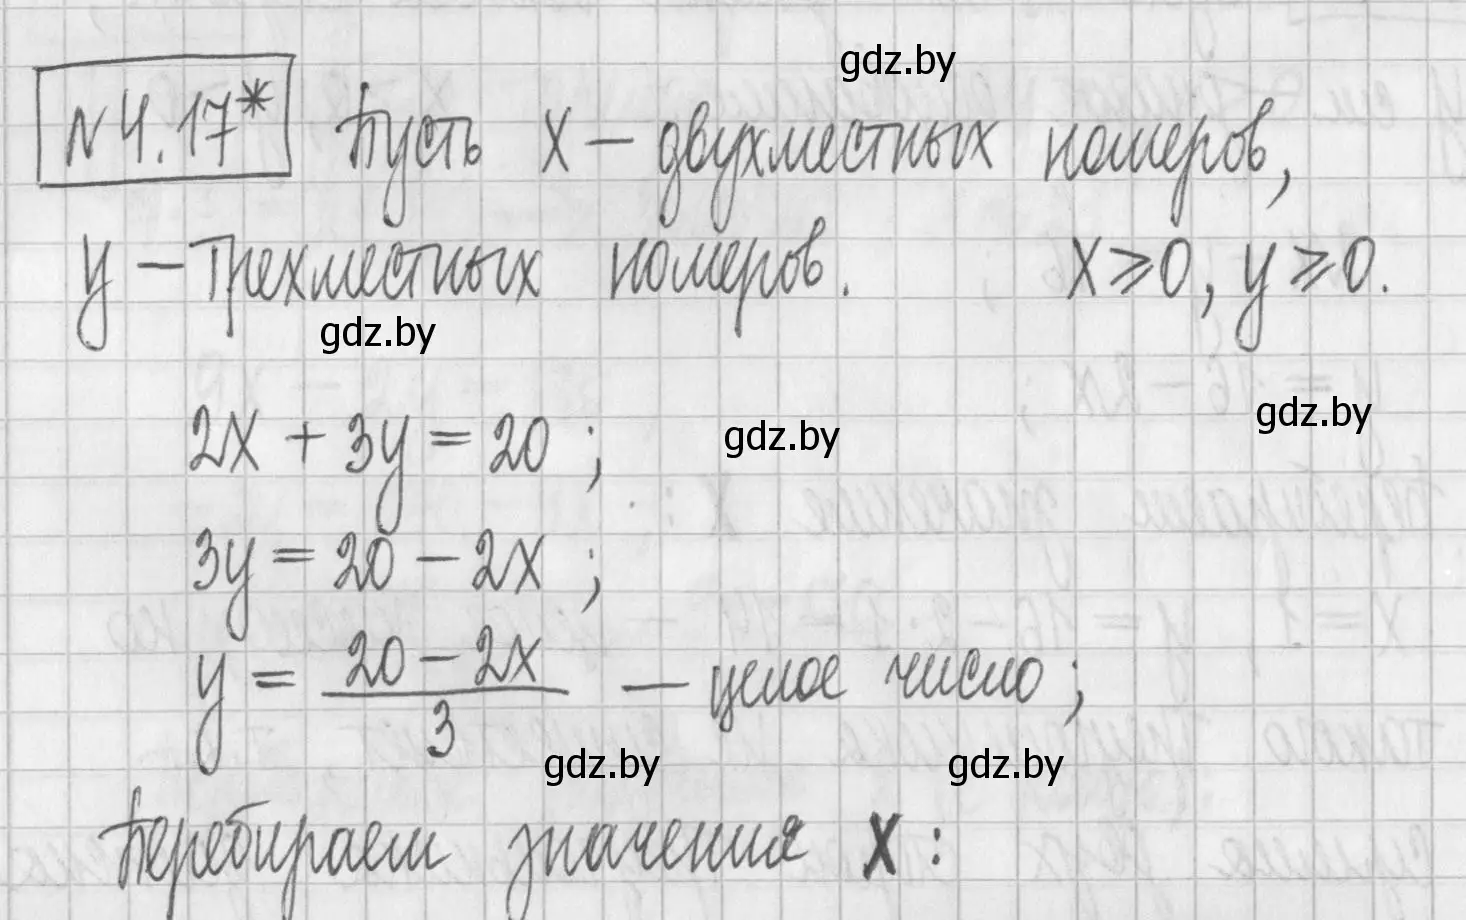 gdz.by
№4.17* Пусть x – двухместных номеров,
y – трехместных номеров. x ⩾ 0, y ⩾ 0.
gdz.by
gdz.by
2x + 3y = 20 ; gdz.by
3y = 20 – 2x ;
y = (20 – 2x)/3 – целое число ;
gdz.by gdz.by
Перебираем значения x :